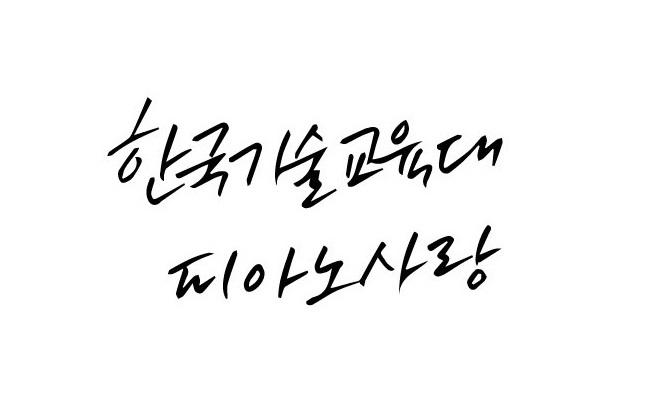 한국기술교육대
피아노사랑